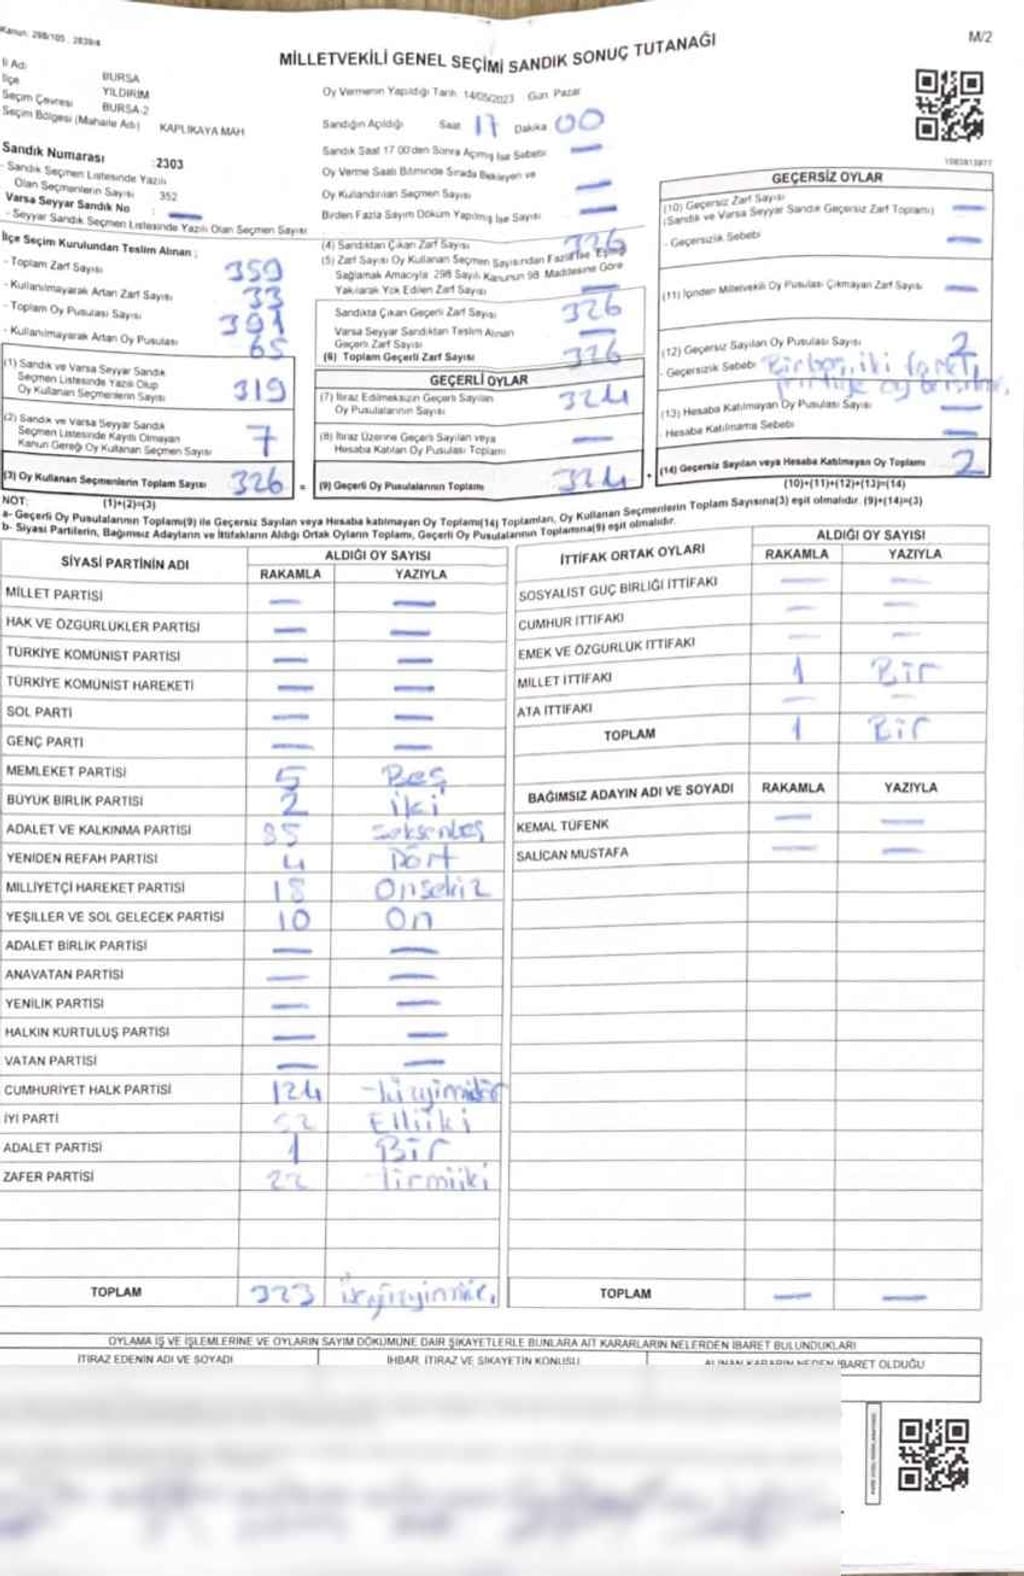 Kanun: 298/105, 2839/4
M/2
MİLLETVEKİLİ GENEL SEÇİMİ SANDIK SONUÇ TUTANAĞI
İl Adı BURSA
İlçe YILDIRIM
Seçim Çevresi BURSA-2
Seçim Bölgesi (Mahalle Adı) KAPLIKAYA MAH
Sandık Numarası :2303
- Sandık Seçmen Listesinde Yazılı
Olan Seçmenlerin Sayısı 352
Varsa Seyyar Sandık No : —
- Seyyar Sandık Seçmen Listesinde Yazılı Olan Seçmen Sayısı
İlçe Seçim Kurulundan Teslim Alınan ;
- Toplam Zarf Sayısı 359
- Kullanılmayarak Artan Zarf Sayısı 33
- Toplam Oy Pusulası Sayısı 391
- Kullanılmayarak Artan Oy Pusulası 65
(1) Sandık ve Varsa Seyyar Sandık
Seçmen Listesinde Yazılı Olup
Oy Kullanan Seçmenlerin Sayısı 319
(2) Sandık ve Varsa Seyyar Sandık
Seçmen Listesinde Kayıtlı Olmayan
Kanun Gereği Oy Kullanan Seçmen Sayısı 7
(3) Oy Kullanan Seçmenlerin Toplam Sayısı 326
(1)+(2)=(3)
Oy Vermenin Yapıldığı Tarih: 14/05/2023 Gün: Pazar
Sandığın Açıldığı Saat 17 Dakika 00
Sandık Saat 17 00'den Sonra Açılmış İse Sebebi —
Oy Verme Saati Bitiminde Sırada Bekleyen ve
Oy Kullandırılan Seçmen Sayısı —
Birden Fazla Sayım Döküm Yapılmış İse Sayısı —
(4) Sandıktan Çıkan Zarf Sayısı 326
(5) Zarf Sayısı Oy Kullanan Seçmen Sayısından Fazla İse Eşitliği
Sağlamak Amacıyla 298 Sayılı Kanunun 98. Maddesine Göre
Yakılarak Yok Edilen Zarf Sayısı —
Sandıkta Çıkan Geçerli Zarf Sayısı 326
Varsa Seyyar Sandıktan Teslim Alınan
Geçerli Zarf Sayısı —
(6) Toplam Geçerli Zarf Sayısı 326
GEÇERLİ OYLAR
(7) İtiraz Edilmeksizin Geçerli Sayılan
Oy Pusulalarının Sayısı 324
(8) İtiraz Üzerine Geçerli Sayılan veya
Hesaba Katılan Oy Pusulası Toplamı —
= (9) Geçerli Oy Pusulalarının Toplamı 324
1083813977
GEÇERSİZ OYLAR
(10) Geçersiz Zarf Sayısı
(Sandık ve Varsa Seyyar Sandık Geçersiz Zarf Toplamı) —
- Geçersizlik Sebebi —
(11) İçinden Milletvekili Oy Pusulası Çıkmayan Zarf Sayısı —
(12) Geçersiz Sayılan Oy Pusulası Sayısı 2
- Geçersizlik Sebebi iki
(13) Hesaba Katılmayan Oy Pusulası Sayısı —
- Hesaba Katılmama Sebebi —
+ (14) Geçersiz Sayılan veya Hesaba Katılmayan Oy Toplamı 2
(10)+(11)+(12)+(13)=(14)
NOT:
a- Geçerli Oy Pusulalarının Toplamı(9) ile Geçersiz Sayılan veya Hesaba katılmayan Oy Toplamı(14) Toplamları, Oy Kullanan Seçmenlerin Toplam Sayısına(3) eşit olmalıdır. (9)+(14)=(3)
b- Siyasi Partilerin, Bağımsız Adayların ve İttifakların Aldığı Ortak Oyların Toplamı, Geçerli Oy Pusulalarının Toplamına(9) eşit olmalıdır.
SİYASİ PARTİNİN ADI ALDIĞI OY SAYISI
RAKAMLA YAZIYLA
MİLLET PARTİSİ — —
HAK VE ÖZGÜRLÜKLER PARTİSİ — —
TÜRKİYE KOMÜNİST PARTİSİ — —
TÜRKİYE KOMÜNİST HAREKETİ — —
SOL PARTİ — —
GENÇ PARTİ — —
MEMLEKET PARTİSİ 5 Beş
BÜYÜK BİRLİK PARTİSİ 2 iki
ADALET VE KALKINMA PARTİSİ 85 seksenbeş
YENİDEN REFAH PARTİSİ 4 Dört
MİLLİYETÇİ HAREKET PARTİSİ 18 Onsekiz
YEŞİLLER VE SOL GELECEK PARTİSİ 10 On
ADALET BİRLİK PARTİSİ — —
ANAVATAN PARTİSİ — —
YENİLİK PARTİSİ — —
HALKIN KURTULUŞ PARTİSİ — —
VATAN PARTİSİ — —
CUMHURİYET HALK PARTİSİ 124
İYİ PARTİ 52 Elliiki
ADALET PARTİSİ 1 Bir
ZAFER PARTİSİ 22 Yirmiiki
TOPLAM 323
İTTİFAK ORTAK OYLARI ALDIĞI OY SAYISI
RAKAMLA YAZIYLA
SOSYALİST GÜÇ BİRLİĞİ İTTİFAKI — —
CUMHUR İTTİFAKI — —
EMEK VE ÖZGÜRLÜK İTTİFAKI — —
MİLLET İTTİFAKI 1 Bir
ATA İTTİFAKI — —
TOPLAM 1 Bir
BAĞIMSIZ ADAYIN ADI VE SOYADI RAKAMLA YAZIYLA
KEMAL TÜFENK — —
SALİCAN MUSTAFA — —
TOPLAM — —
OYLAMA İŞ VE İŞLEMLERİNE VE OYLARIN SAYIM DÖKÜMÜNE DAİR ŞİKAYETLERLE BUNLARA AİT KARARLARIN NELERDEN İBARET BULUNDUKLARI
İTİRAZ EDENİN ADI VE SOYADI İHBAR, İTİRAZ VE ŞİKAYETİN KONUSU ALINAN KARARIN NEDEN İBARET OLDUĞU